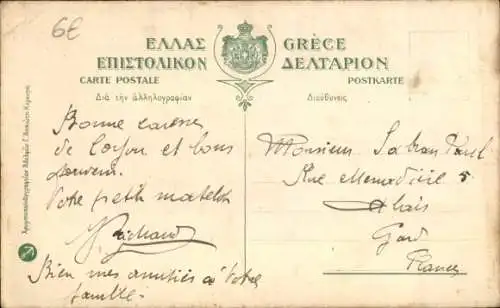 6E
ΕΛΛΑΣ GRÈCE
ΕΠΙΣΤΟΛΙΚΟΝ ΔΕΛΤΑΡΙΟΝ
CARTE POSTALE POSTKARTE
Διὰ τὴν ἀλληλογραφίαν Διεύθυνσις
Bonne
de Corfou et bons
souvenir.
Votre petit matelot
Richaud
Bien mes amitiés à Votre
famille.
Monsieur Paul
Rue 5
Alais
Gard
France